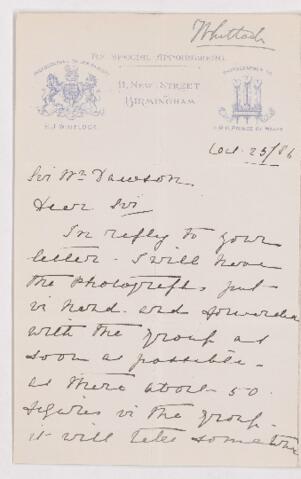 Whitlock
BY SPECIAL APPOINTMENT.
PHOTOGRAPHER TO HER MAJESTY
PHOTOGRAPHER TO
11, NEW STREET
BIRMINGHAM
H. J. WHITLOCK.
H.R.H. PRINCE OF WALES
Oct. 25/86
Sir Wm Dawson
Dear Sir
In reply to your
letter. I will have
the Photografts put
in hand and forwarded
with the group as
soon as possible.
as there about 50
figures in the group.
it will take sometime